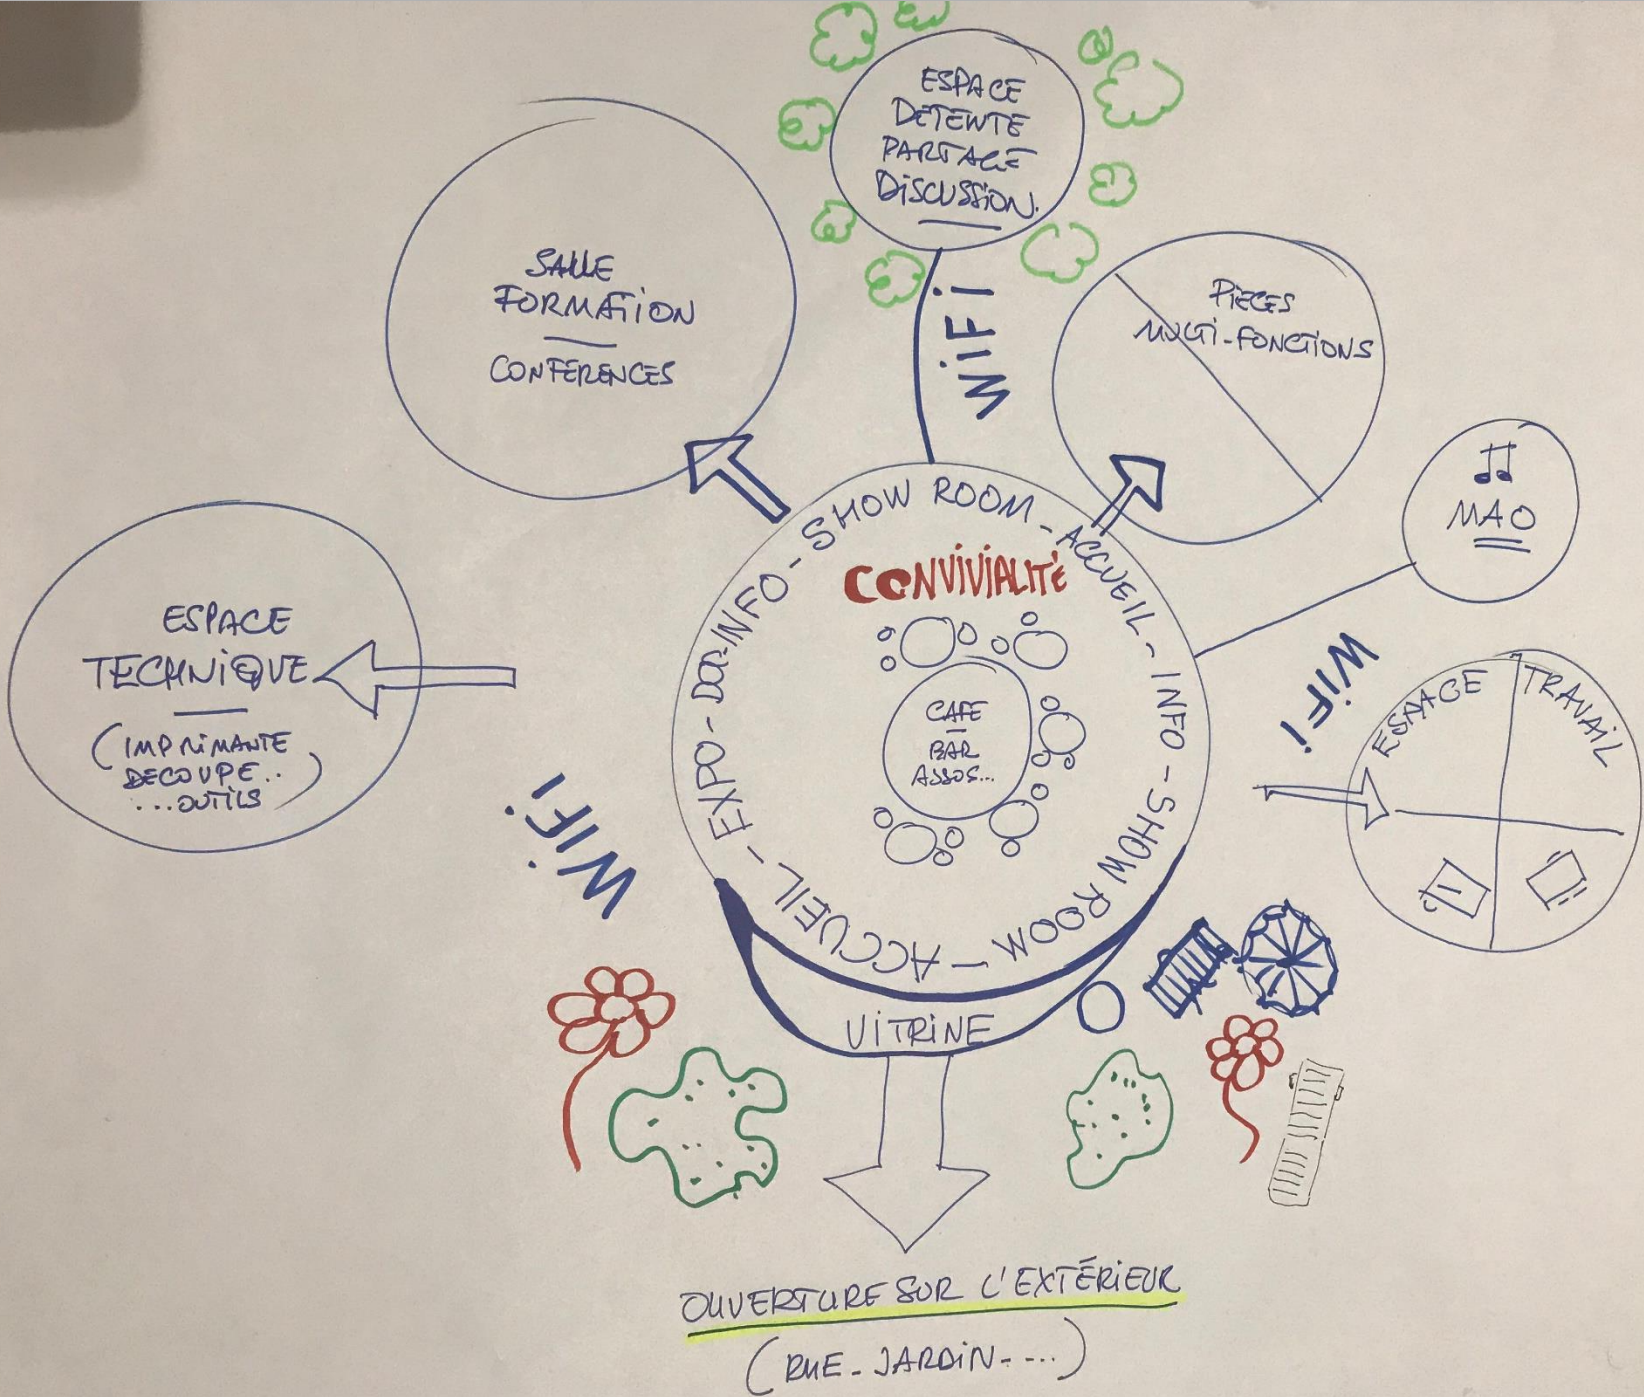 ESPACE
DÉTENTE
PARTAGE
DISCUSSION.
SALLE
FORMATION
CONFÉRENCES
WiFi
PIÈCES
MULTI-FONCTIONS
MAO
ESPACE
TECHNIQUE
(IMPRIMANTE
DECOUPE..
...OUTILS)
ACCUEIL - EXPO - DOC-INFO - SHOW ROOM - ACCUEIL - INFO - SHOW ROOM -
CONVIVIALITÉ
CAFE
BAR
ASSOS...
WiFi
ESPACE TRAVAIL
WiFi
VITRINE
OUVERTURE SUR L'EXTÉRIEUR
(RUE - JARDIN - ....)